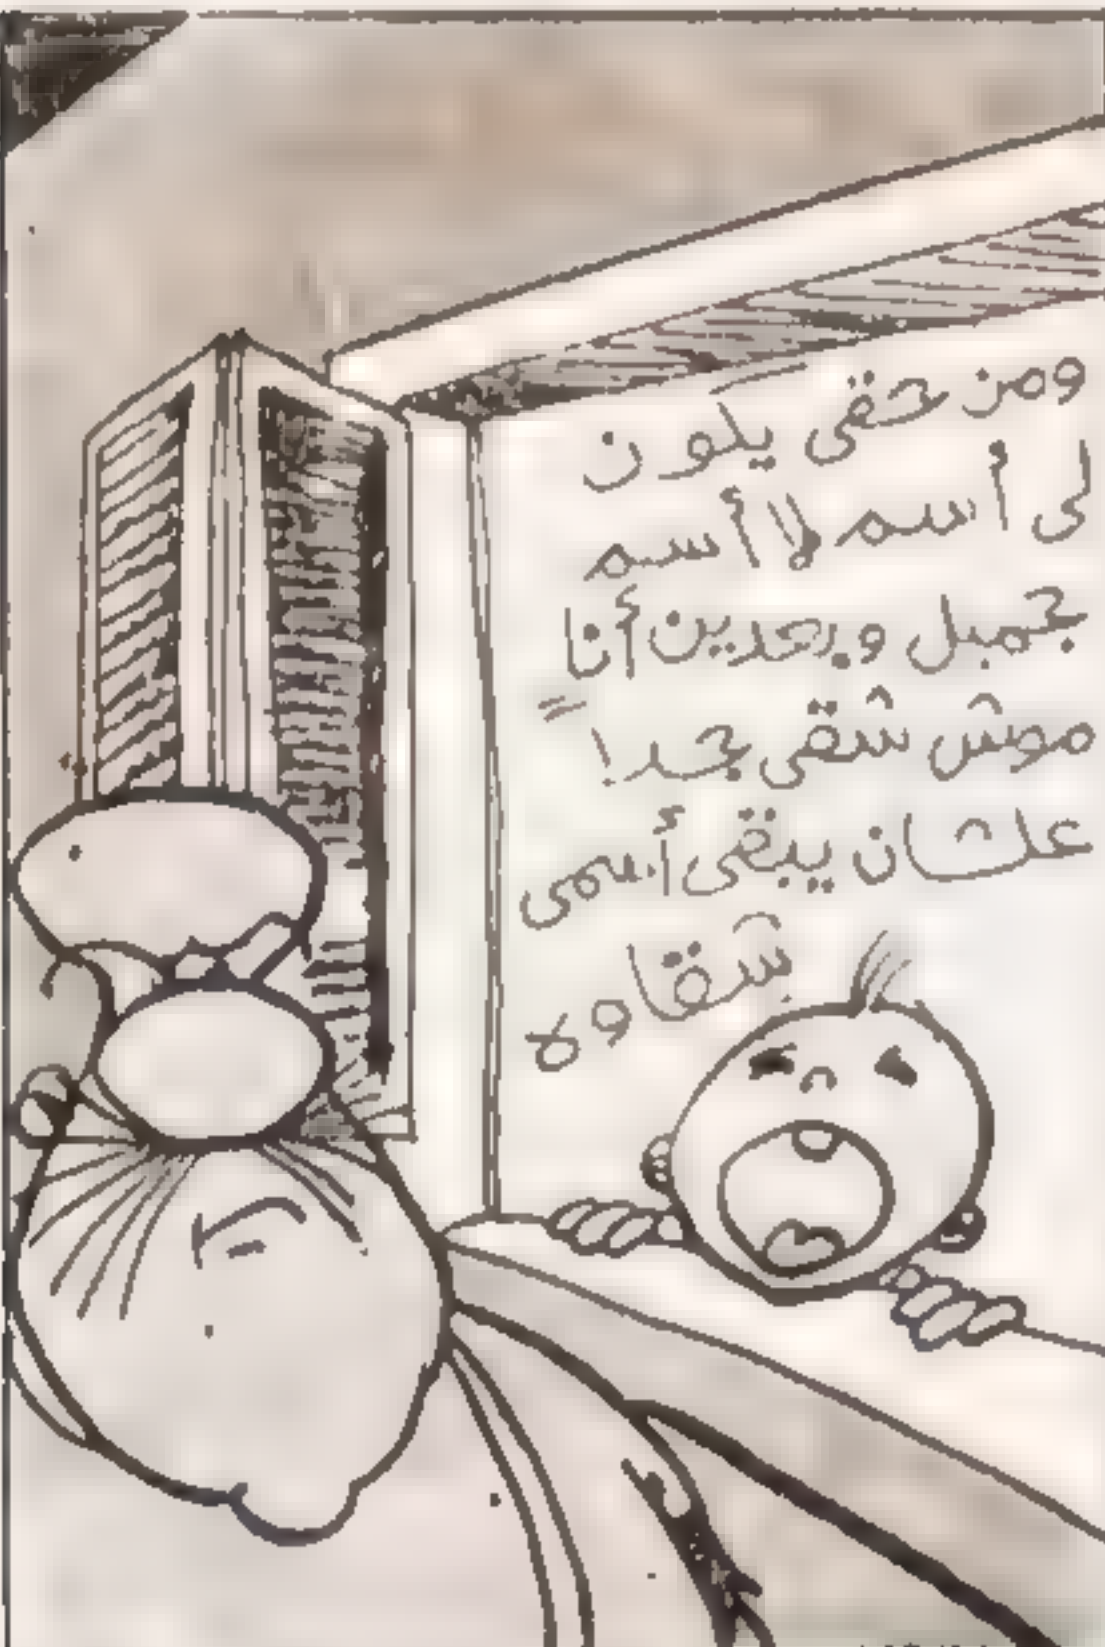 ومن حقى يكون
لى أسم لا أسم
جميل وبعدين أنا
موش شقى جداً!
علشان يبقى أسمى
شقاوه